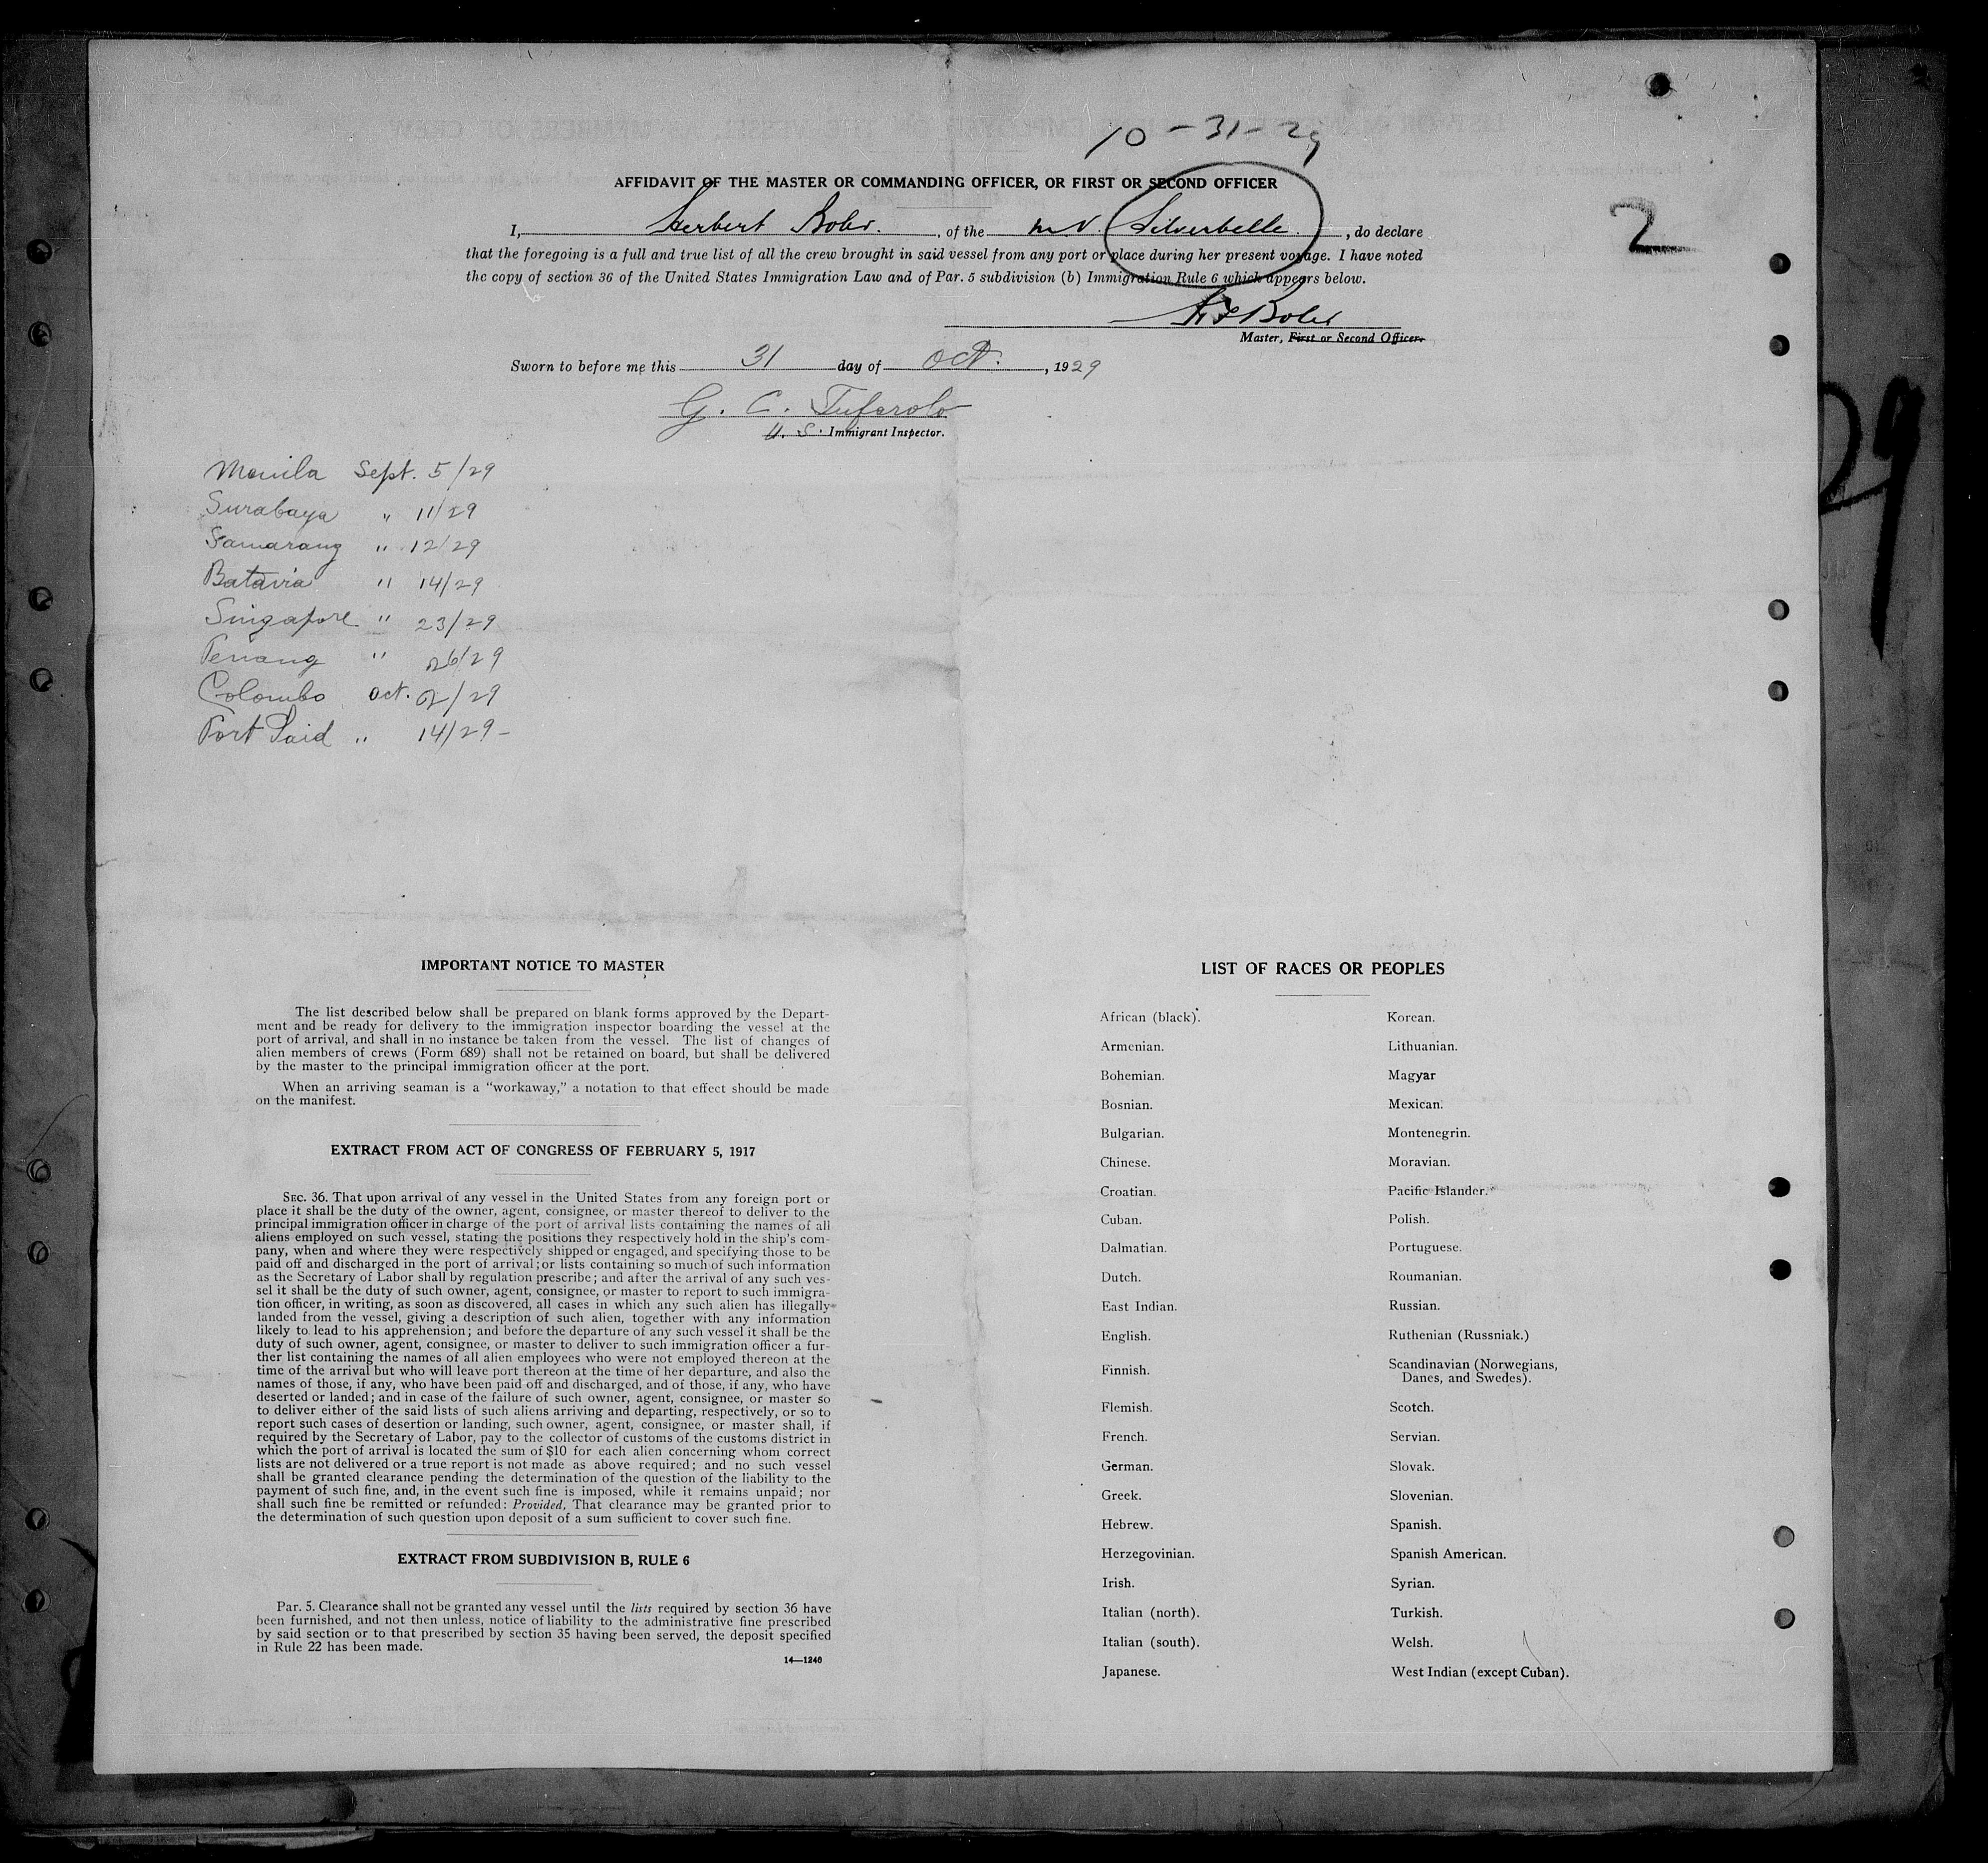 10-31-29
AFFIDAVIT OF THE MASTER OR COMMANDING OFFICER, OR FIRST OR SECOND OFFICER
2
I, Herbert , of the M.V. Silverbelle, do declare
that the foregoing is a full and true list of all the crew brought in said vessel from any port or place during her present voyage. I have noted
the copy of section 36 of the United States Immigration Law and of Par. 5 subdivision (b) Immigration Rule 6 which appears below.
Master, First or Second Officer.
Sworn to before me this 31 day of Oct. , 1929
G. C. Tufarolo
U. S. Immigrant Inspector.
29
Manila Sept. 5/29
Surabaya " 11/29
Samarang " 12/29
Batavia " 14/29
Singapore " 23/29
Penang " 26/29
Colombo Oct. 2/29
Port Said " 14/29-
IMPORTANT NOTICE TO MASTER
The list described below shall be prepared on blank forms approved by the Depart-
ment and be ready for delivery to the immigration inspector boarding the vessel at the
port of arrival, and shall in no instance be taken from the vessel. The list of changes of
alien members of crews (Form 689) shall not be retained on board, but shall be delivered
by the master to the principal immigration officer at the port.
When an arriving seaman is a "workaway," a notation to that effect should be made
on the manifest.
EXTRACT FROM ACT OF CONGRESS OF FEBRUARY 5, 1917
SEC. 36. That upon arrival of any vessel in the United States from any foreign port or
place it shall be the duty of the owner, agent, consignee, or master thereof to deliver to the
principal immigration officer in charge of the port of arrival lists containing the names of all
aliens employed on such vessel, stating the positions they respectively hold in the ship's com-
pany, when and where they were respectively shipped or engaged, and specifying those to be
paid off and discharged in the port of arrival; or lists containing so much of such information
as the Secretary of Labor shall by regulation prescribe; and after the arrival of any such ves-
sel it shall be the duty of such owner, agent, consignee, or master to report to such immigra-
tion officer, in writing, as soon as discovered, all cases in which any such alien has illegally
landed from the vessel, giving a description of such alien, together with any information
likely to lead to his apprehension; and before the departure of any such vessel it shall be the
duty of such owner, agent, consignee, or master to deliver to such immigration officer a fur-
ther list containing the names of all alien employees who were not employed thereon at the
time of the arrival but who will leave port thereon at the time of her departure, and also the
names of those, if any, who have been paid off and discharged, and of those, if any, who have
deserted or landed; and in case of the failure of such owner, agent, consignee, or master so
to deliver either of the said lists of such aliens arriving and departing, respectively, or so to
report such cases of desertion or landing, such owner, agent, consignee, or master shall, if
required by the Secretary of Labor, pay to the collector of customs of the customs district in
which the port of arrival is located the sum of $10 for each alien concerning whom correct
lists are not delivered or a true report is not made as above required; and no such vessel
shall be granted clearance pending the determination of the question of the liability to the
payment of such fine, and, in the event such fine is imposed, while it remains unpaid; nor
shall such fine be remitted or refunded: Provided, That clearance may be granted prior to
the determination of such question upon deposit of a sum sufficient to cover such fine.
EXTRACT FROM SUBDIVISION B, RULE 6
Par. 5. Clearance shall not be granted any vessel until the lists required by section 36 have
been furnished, and not then unless, notice of liability to the administrative fine prescribed
by said section or to that prescribed by section 35 having been served, the deposit specified
in Rule 22 has been made.
14—1240
LIST OF RACES OR PEOPLES
African (black).
Armenian.
Bohemian.
Bosnian.
Bulgarian.
Chinese.
Croatian.
Cuban.
Dalmatian.
Dutch.
East Indian.
English.
Finnish.
Flemish.
French.
German.
Greek.
Hebrew.
Herzegovinian.
Irish.
Italian (north).
Italian (south).
Japanese.
Korean.
Lithuanian.
Magyar
Mexican.
Montenegrin.
Moravian.
Pacific Islander.
Polish.
Portuguese.
Roumanian.
Russian.
Ruthenian (Russniak.)
Scandinavian (Norwegians,
Danes, and Swedes).
Scotch.
Servian.
Slovak.
Slovenian.
Spanish.
Spanish American.
Syrian.
Turkish.
Welsh.
West Indian (except Cuban).